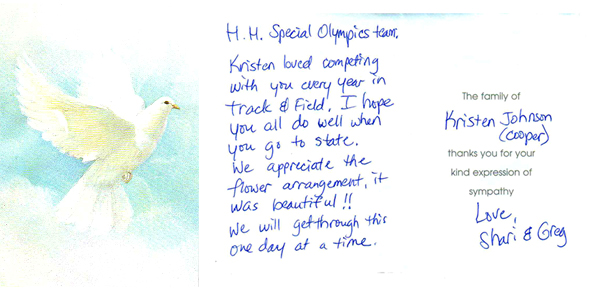 H.H. Special Olympics team,
Kristen loved competing
with you every year in
Track & Field. I hope
you all do well when
you go to state.
We appreciate the
flower arrangement, it
was beautiful!!
We will get through this
one day at a time.
The family of
Kristen Johnson
(Cooper)
thanks you for your
kind expression of
sympathy
Love,
Shari & Greg